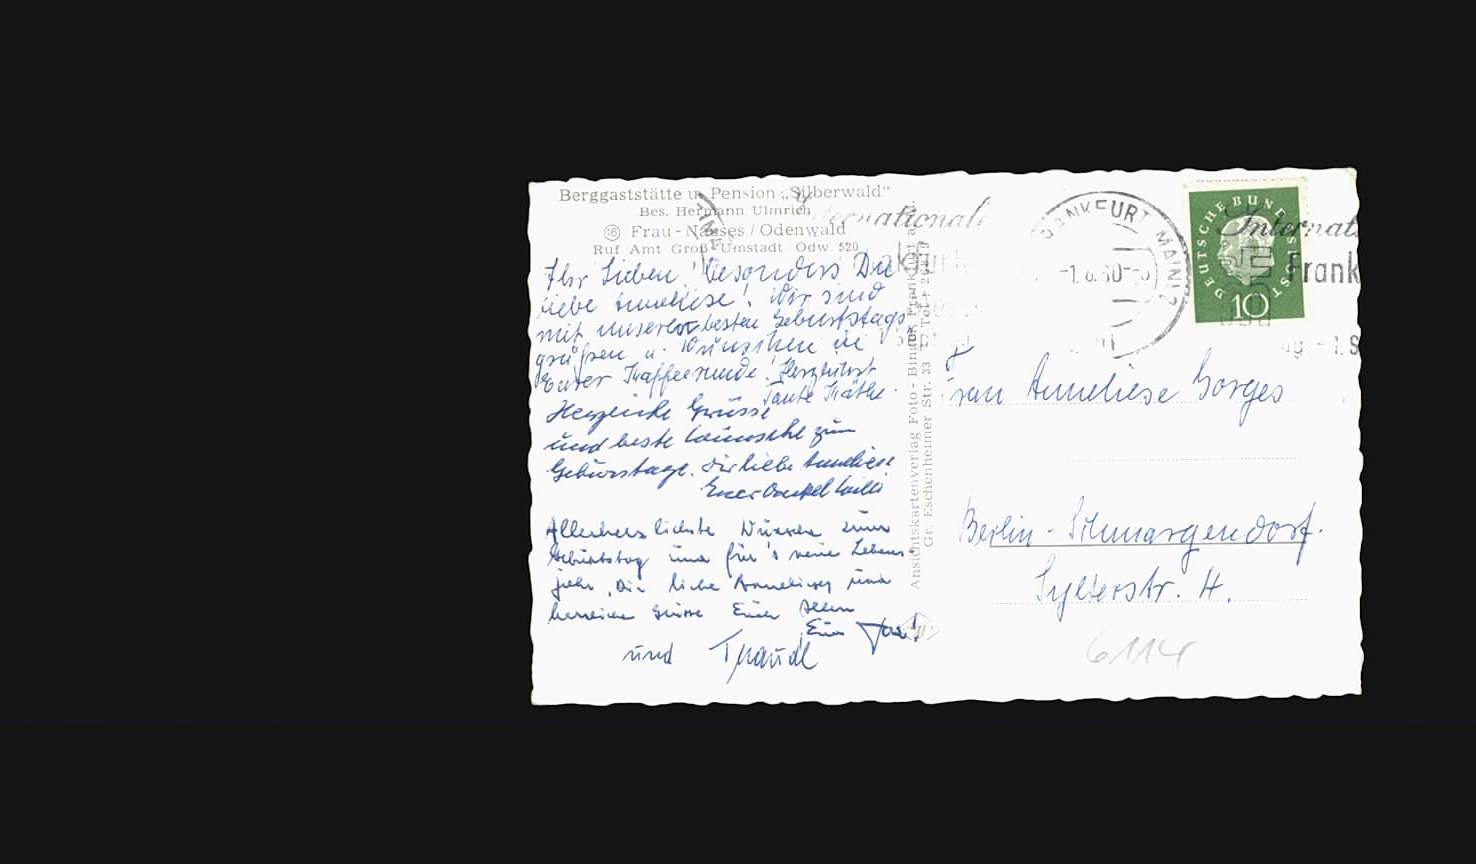 Berggaststätte u. Pension „Silberwald“
Bes. Hermann Ulmrich
(16) Frau-Nauses / Odenwald
Ruf Amt Groß-Umstadt Odw. 520
Ihr Lieben! besonders Du
liebe Anneliese! Wir sind
mit unseren besten Geburtstags
grüßen u. Wünschen in
Eurer Kaffeerunde! Herzlichst
Tante Käthe.
Herzliche Grüsse
und beste Wünsche zum
Geburtstage. Dir liebe Anneliese
Euer Onkel Willi
Allerherzlichste Wünsche zum
Geburtstag und für's neue Lebens-
jahr, Dir liebe Anneliese und
Grüsse Euch Allen
Euer
und Traudl
Ansichtskartenverlag Foto-Binger, Frankfurt
Gr. Eschenheimer Str. 33 Tel.
Internationale
FRANKFURT MAIN
-1.8.60-
DEUTSCHE BUNDESPOST
10
Internat
Frank
- 1. S
Frau Anneliese Gorges
Berlin-Schmargendorf.
Sylterstr. 4.
6114